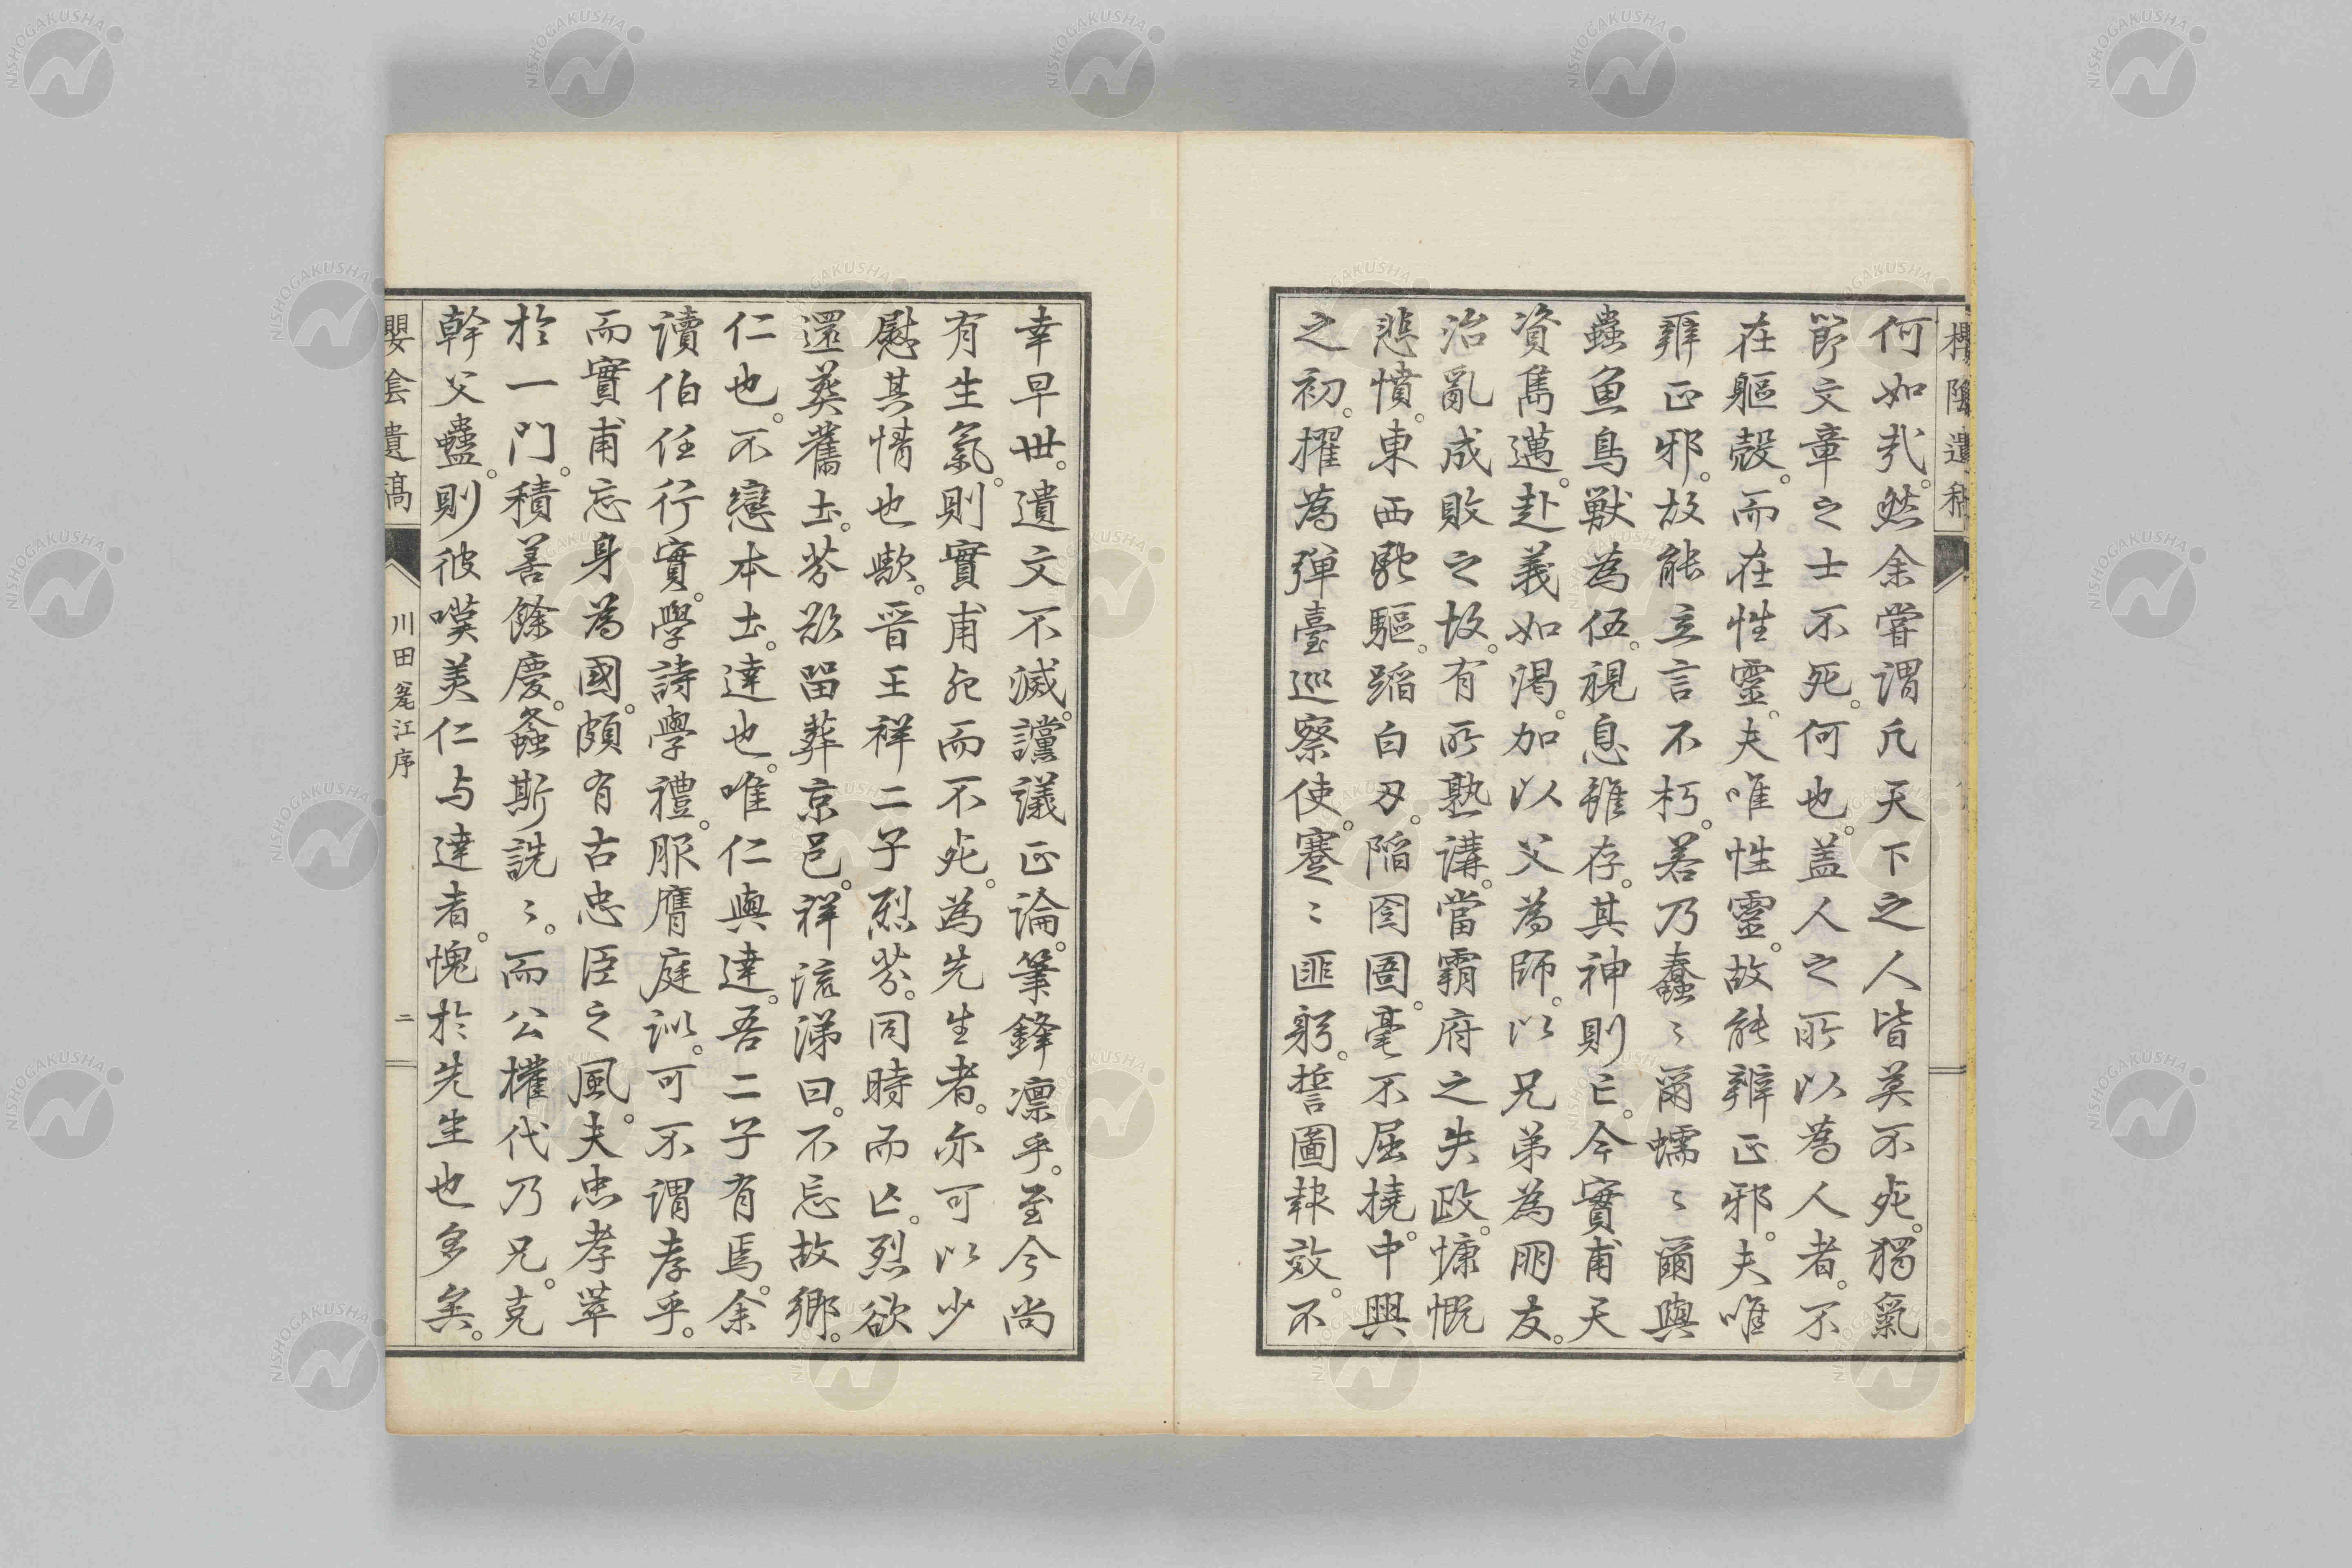 櫻陰遺稿
何如哉。然余嘗謂凡天下之人皆莫不死。獨氣
節文章之士不死。何也。盖人之所以為人者。不
在軀殻。而在性靈。夫唯性靈。故能辨正邪。夫唯
辨正邪。故能立言不朽。若乃蠢〻爾蠕〻爾與
蟲魚鳥獣為伍。視息雖存。其神則亡。今實甫天
資雋邁。赴義如渇。加以父為師。以兄弟為朋友。
治亂成敗之故。有所熟講。當霸府之失政。慷慨
悲憤。東西馳驅。蹈白刃。陥囹圄。毫不屈撓。中興
之初。擢為弾臺巡察使。蹇〻匪躬。誓圖報效。不
幸早世。遺文不滅。讜議正論。筆鋒凛乎。至今尚
有生氣。則實甫死而不死。為先生者。亦可以少
慰其情也歟。晋王祥二子烈芬。同時而亡。烈欲
還葬舊土。芬欲留葬京邑。祥流涕曰。不忘故郷。
仁也。不戀本土。達也。唯仁與達。吾二子有焉。余
讀伯任行實。學詩學禮。服膺庭訓。可不謂孝乎。
而實甫忘身為國。頗有古忠臣之風。夫忠孝萃
於一門。積善餘慶。螽斯詵〻。而公權代乃兄。克
幹父蠱。則彼嘆美仁与達者。愧於先生也多矣。
櫻陰遺稿
川田甕江序
二
NISHOGAKUSHA